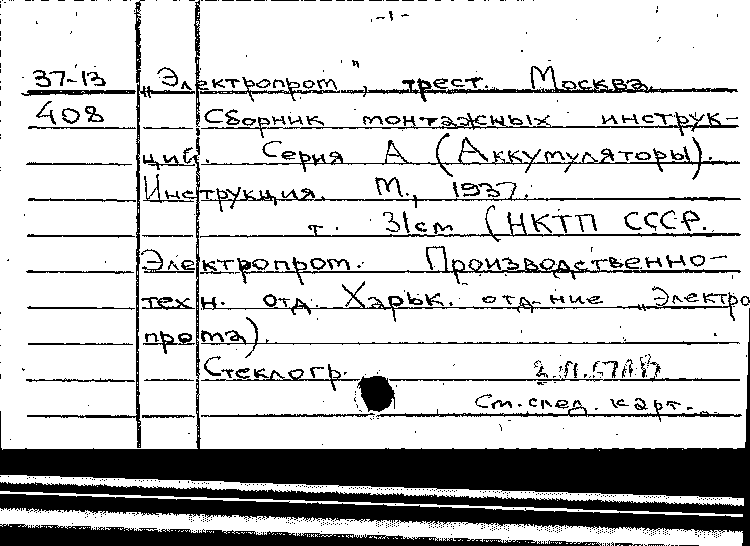 -1-
37-13 „Электропром", трест. Москва.
408 Сборник монтажных инструк-
ций. Серия А (Аккумуляторы).
Инструкция. М., 1937.
т. 31см (НКТП СССР.
Электропром. Производственно-
техн. отд. Харьк. отд-ние „Электро
прома).
Стеклогр.
См. след. карт.